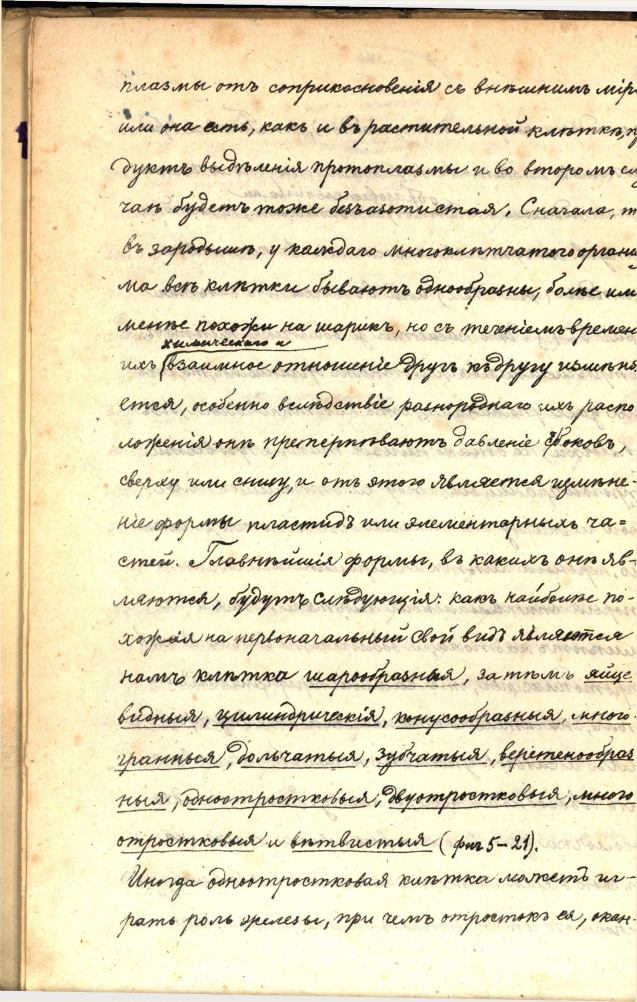 плазмы отъ соприкосновенія съ внѣшнимъ міро
или она есть, какъ и въ растительной клѣткѣ, п
дуктъ выдѣленія протоплазмы и во второмъ слу
чаѣ будетъ тоже безъазотистая. Сначала, т
въ зародышѣ, у каждаго многоклѣтчатого органи
ма всѣ клѣтки бываютъ однообразны, болѣе или
менѣе похожи на шарикъ, но съ теченіемъ времен
химическаго и
ихъ взаимное отношеніе другъ къ другу измѣня
ется, особенно вслѣдствіе разнороднаго ихъ распо
ложенія онѣ претерпѣваютъ давленіе съ боковъ,
сверху или снизу, и отъ этого является измѣне-
ніе формы пластидъ или элементарныхъ ча=
стей. Главнѣйшія формы, въ какихъ онѣ яв-
ляются, будутъ слѣдующія: какъ наиболѣе по-
хожая на первоначальный свой видъ является
намъ клѣтка шарообразныя, затѣмъ яйце
видныя, цилиндрическія, конусообразныя, много-
гранныя, дольчатыя, зубчатыя, веретенообраз
ныя, одноотростковыя, двуотростковыя, много
отростковыя и вѣтвистыя (фиг 5-21).
Иногда одноотростковая клѣтка можетъ иг-
рать роль железы, при чемъ отростокъ ея, окан-